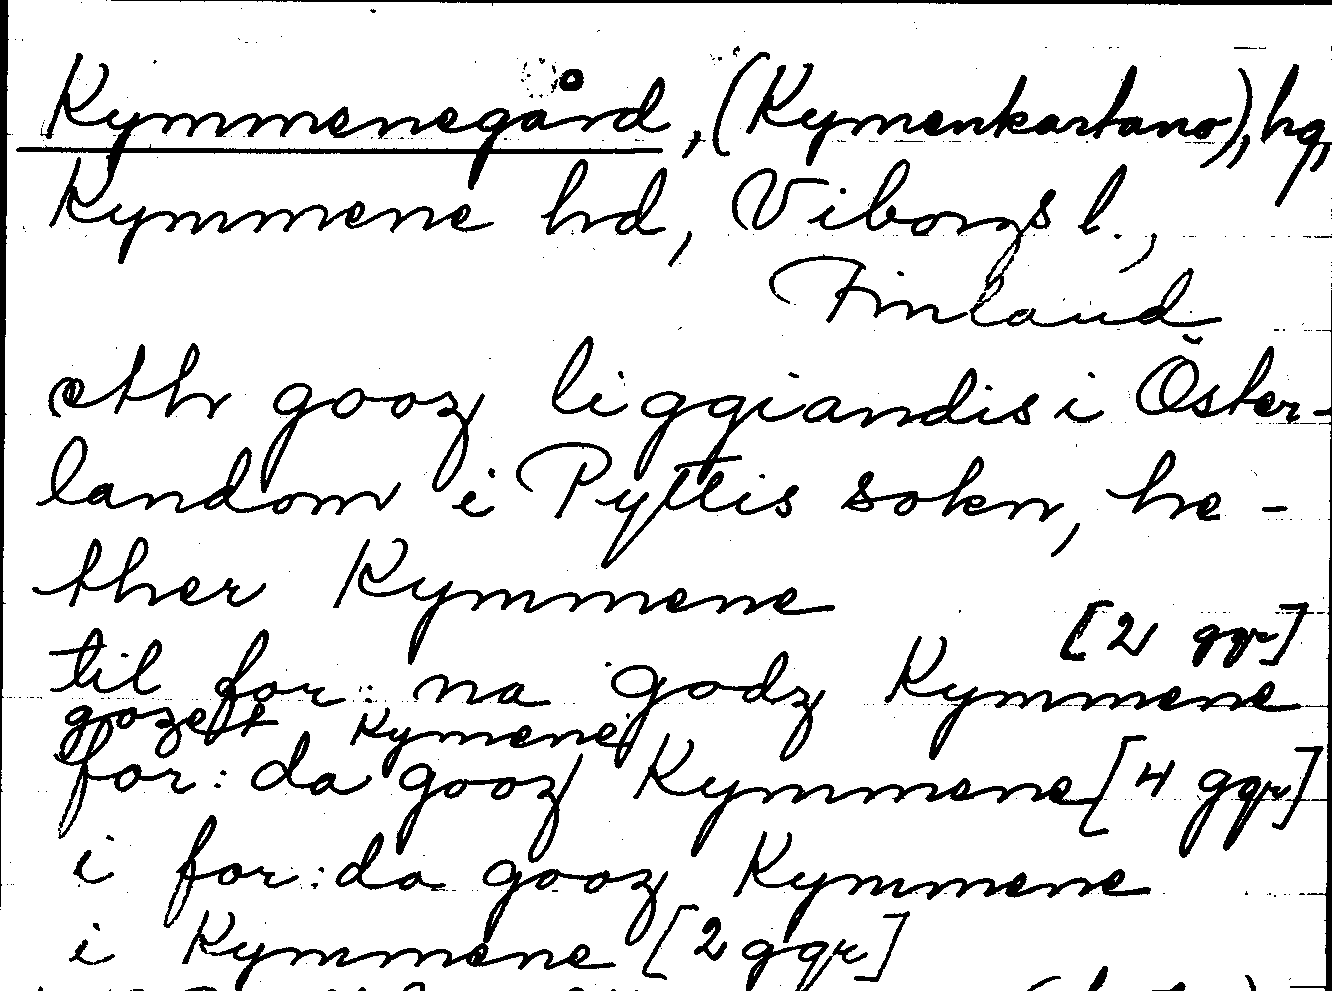 Kymmenegård, (Kymenkartano), hg,
Kymmene hd, Viborgs l.,
Finland
eth gooz liggiandis i Öster-
landom i Pyttis sokn, he-
ther Kymmene
[2 ggr]
til for: na godz Kymmene
gozeth Kymene
for: da gooz Kymmene [4 ggr]
i for: da gooz Kymmene
i Kymmene [2 ggr]